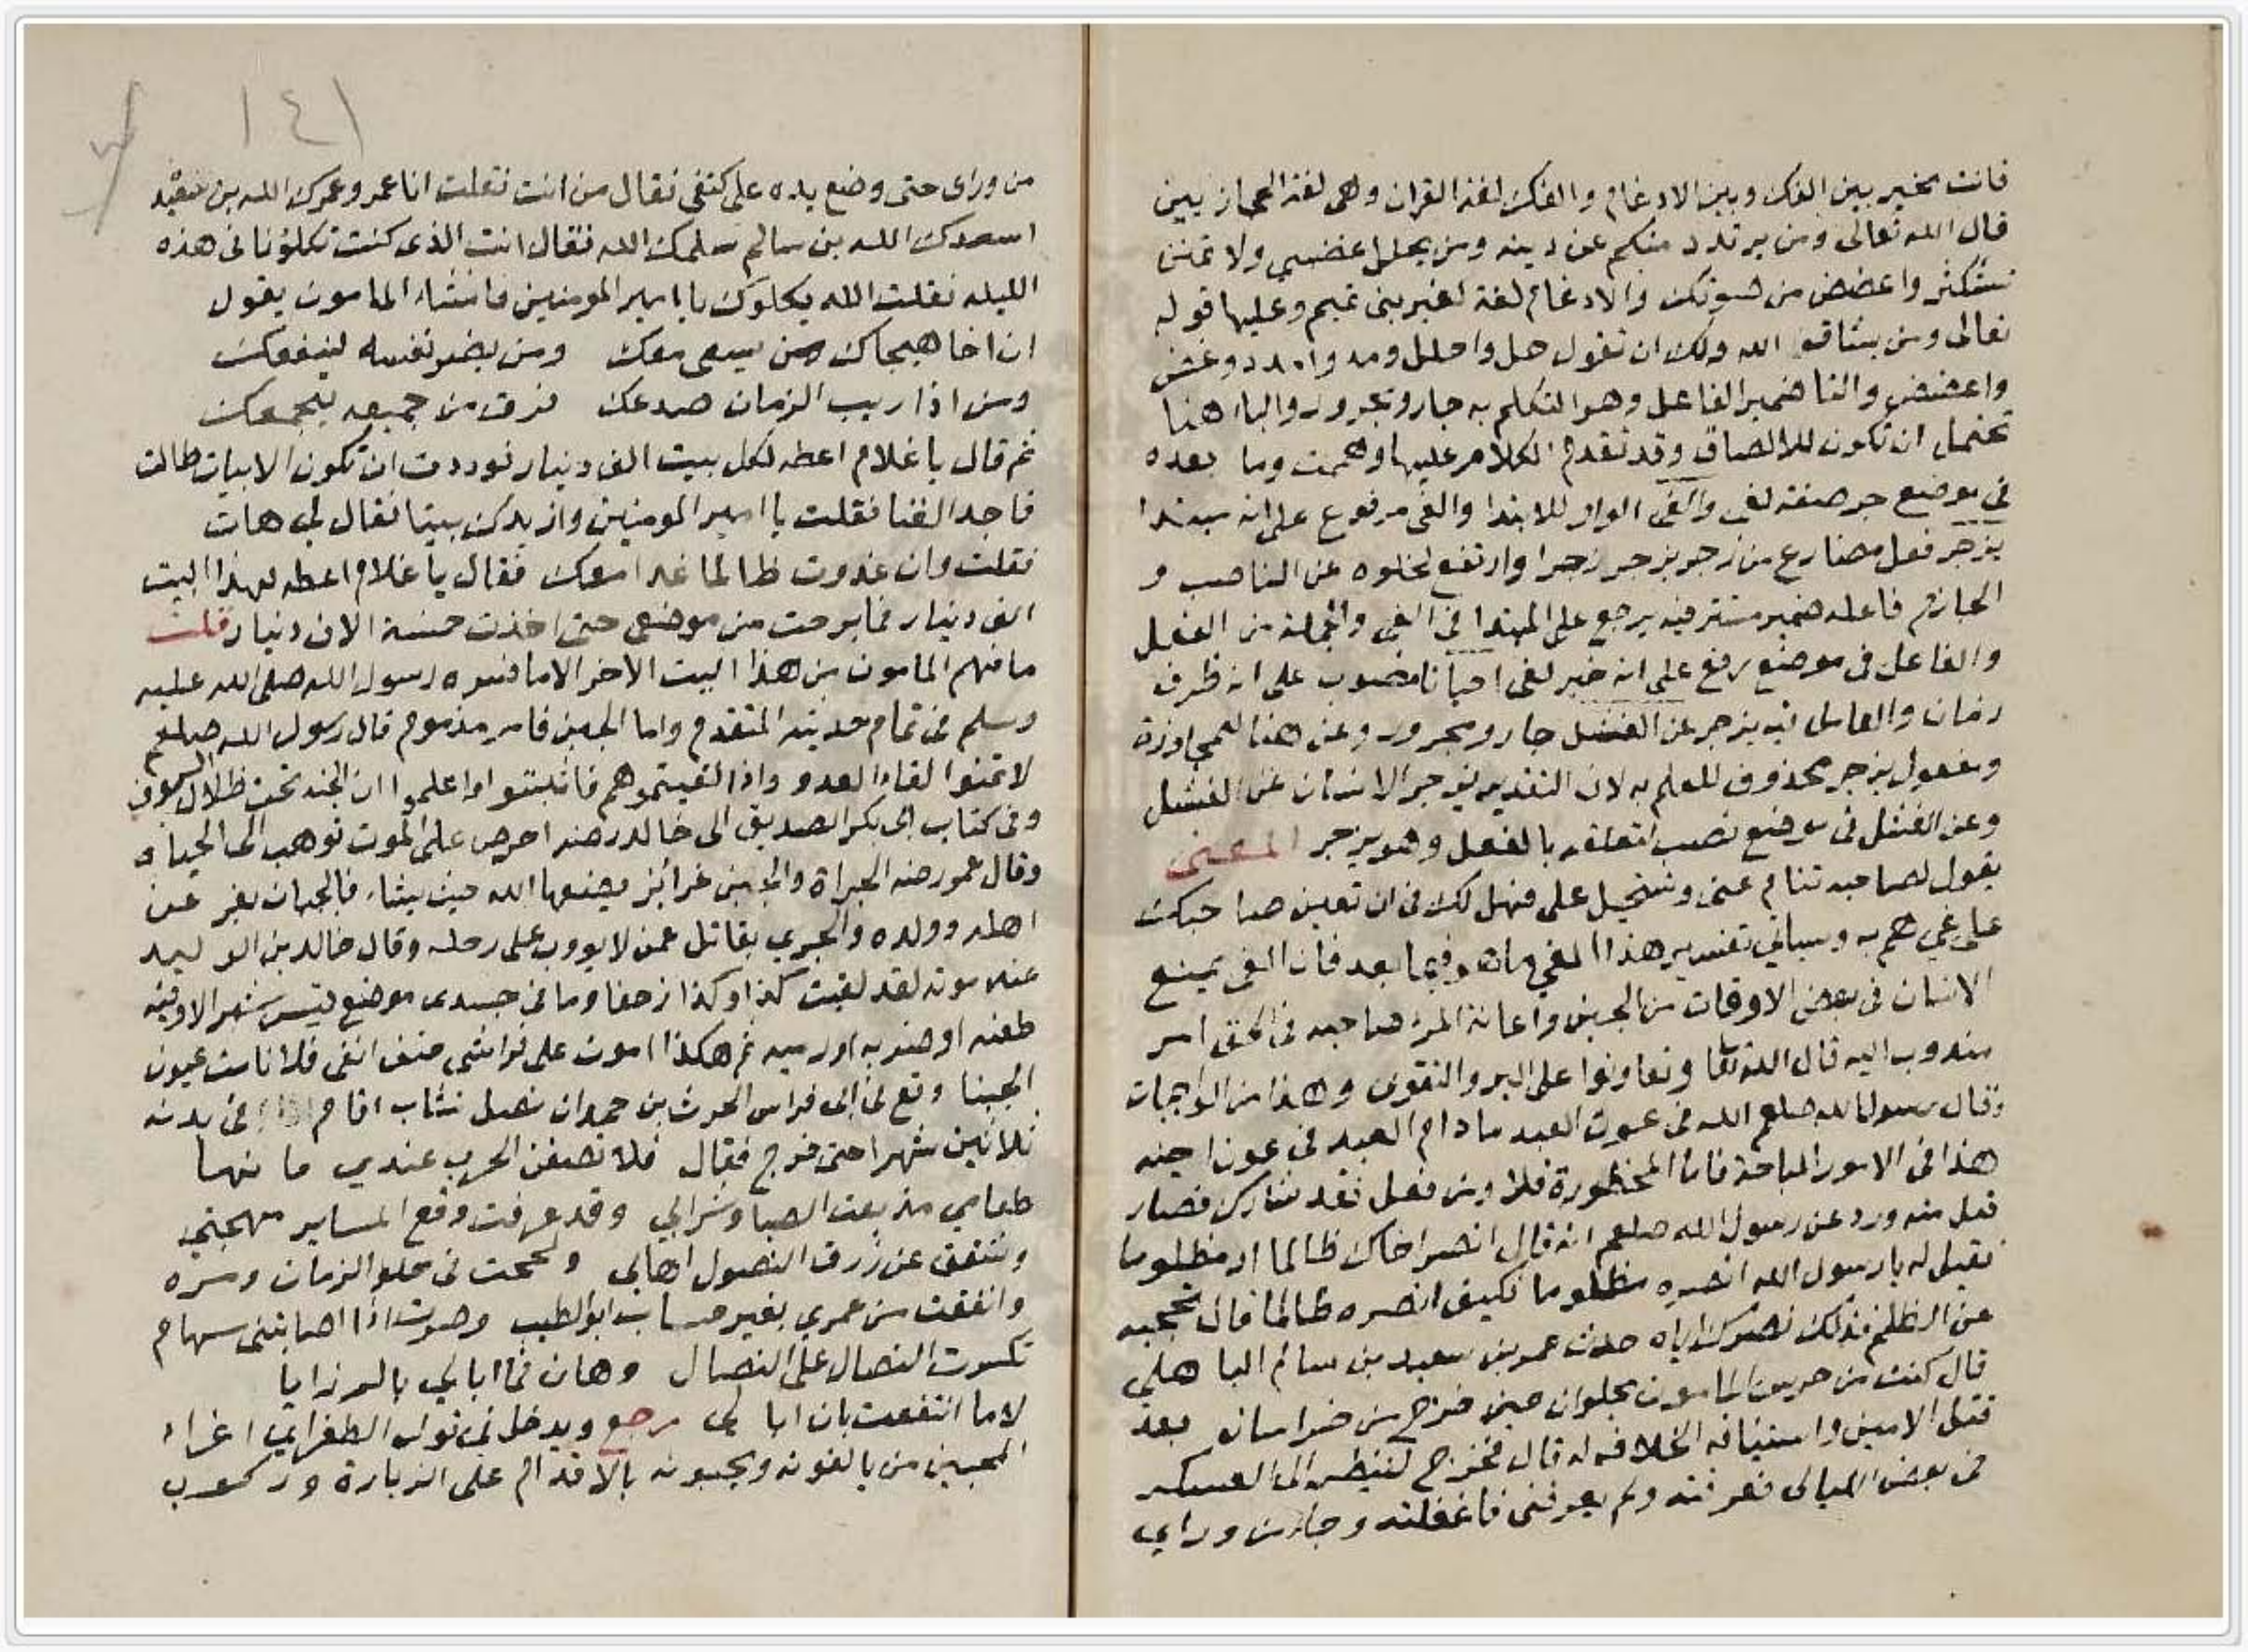 فانت مخير بين الفك وبين الادغام والفك لغة القران وهى لغة الحجازيين
قال الله تعالى ومن يرتدد منكم عن دينه ومن يحلل عليه غضبي ولا تمنن
تستكثر واغضض من صوتك والادغام لغة لغير بنى تميم وعليها قوله
تعالى ومن يشاق الله ولك ان تقول حل واحلل ومد وامدد وغض
واغضض والتا ضمير الفاعل وهو التكلم به جار ومجرور والباا هنا
تحتمل ان تكون للالصاق وقد تقدم الكلام عليها وهممت وما بعده
فى موضع جر صفة لغى والغى الواو للابتدا والغى مرفوع على انه مبتدا
يزجر فعل مضارع من زجر يزجر زجرا وارتفع لخلوه عن الناصب و
الجازم فاعله ضمير مستتر فيه يرجع على المبتدا فى الغى والجملة من الفعل
والفاعل فى موضع رفع على انه خبر لغى احيانا منصوب على انه ظرف
زمان والعامل فيه يزجر عن الفشل جار ومجرور وعن هنا للمجاوزة
ومفعول يزجر محذوف للعلم به لان التقدير يزجر الانسان عن الفشل
وعن الفشل فى موضع نصب لتعلقه بالفعل وهو يزجر المعنى
يقول لصاحبه تنام عنى وتستحيل على فهل لك فى ان تعين صاحبك
على غي هم به وسياتي تفسير هذا الغي ما هو فيما بعد فان الغى يمنع
الانسان فى بعض الاوقات من الجبن واعانة المرء صاحبه فى الحق امر
مندوب اليه قال الله تعا وتعاونوا على البر والتقوى وهذا من الواجبات
وقال رسول الله صلعم الله فى عون العبد ما دام العبد فى عون اخيه
هذا فى الامور المباحة فاما المحظورة فلا ومن فعل فقد شارك فصار
قبل منه ورد عن رسول الله صلعم انه قال انصر اخاك ظالما او مظلوما
فقيل له يا رسول الله انصره مظلوما فكيف انصره ظالما قال تحجبه
عن الظلم فذلك نصرك اياه حدث عمرو بن سعيد بن سالم الباهلى
قال كنت من حرس المامون بحلوان حين خرج من خراسان بعد
قتل الامين واستيثاقه الخلافه له قال فخرج لينظر الى العسكر
فى بعض الليالى فعرفته ولم يعرفنى فاغفلته وجا من وراي
١٤١
من وراى حتى وضع يده على كتفى فقال من انت فقلت انا عمرو عمرك الله بن سعيد
اسعدك الله بن سالم سلمك الله فقال انت الذى كنت تكلونا فى هذه
الليله فقلت الله يكلوك يا امير المومنين فانشاء المامون يقول
ان اخا هيجاك من يسعى معك ومن يضر نفسه لينفعك
ومن اذا ريب الزمان صدعك فرق من جميعه ليجمعك
ثم قال يا غلام اعطه لكل بيت الف دينار فوددت ان تكون الابيات طالت
فاجد الغنا فقلت يا امير المومنين وازيدك بيتا فقال لى هات
فقلت وان غدوت ظالما غدا معك فقال يا غلام اعطه لهذا البيت
الف دينار فما برحت من موضعى حتى اخذت خمسة الاف دينار قلت
ما فهم المامون من هذا البيت الاخر الا ما فسره رسول الله صلى الله عليه
وسلم فى تمام حديثه المتقدم واما الجبن فامر مذموم قال رسول الله صلعم
لا تتمنوا لقاء العدو واذا لقيتموهم فاثبتوا واعلموا ان الجنه تحت ظلال السيوف
وفى كتاب ابى بكر الصديق الى خالد رضه احرص على الموت توهب لك الحياه
وقال عمر رضه الجراة والجبن غرائز يضعها الله حيث يشاء فالجبان يفر عن
اهله وولده والجرى يقاتل عمن لا يووب على رحله وقال خالد بن الوليد
عند موته لقد لقيت كذا وكذا زحفا وما فى جسدى موضع شبر الا وفيه
طعنه او ضربه او رميه ثم هكذا اموت على فراشى حتف انفى فلا نامت عيون
الجبنا وقع لى ابى فراس الحرث بن حمدان نصل نشاب اقام فى بدنه
ثلاثين شهرا حتى خرج فقال فلا تصفن الحرب عندي ما نها
طعامي مذ بعت الصبا وشرابي وقد عرفت وقع المسامير مهجتي
وشقق عن زرق النصول اهابي ولججت فى حلو الزمان ومره
وانفقت من عمري بغير حساب ابو الطيب وصرت اذا اصابتنى سهام
تكسرت النصال على النصال وهان فما ابالي بالرزايا
لاما انتفعت بان ابالى رجع ويدخل فى قول الطغراي اغراء
المحبين من يالفونه ويحبونه بالاقدام على الزيارة وركوب